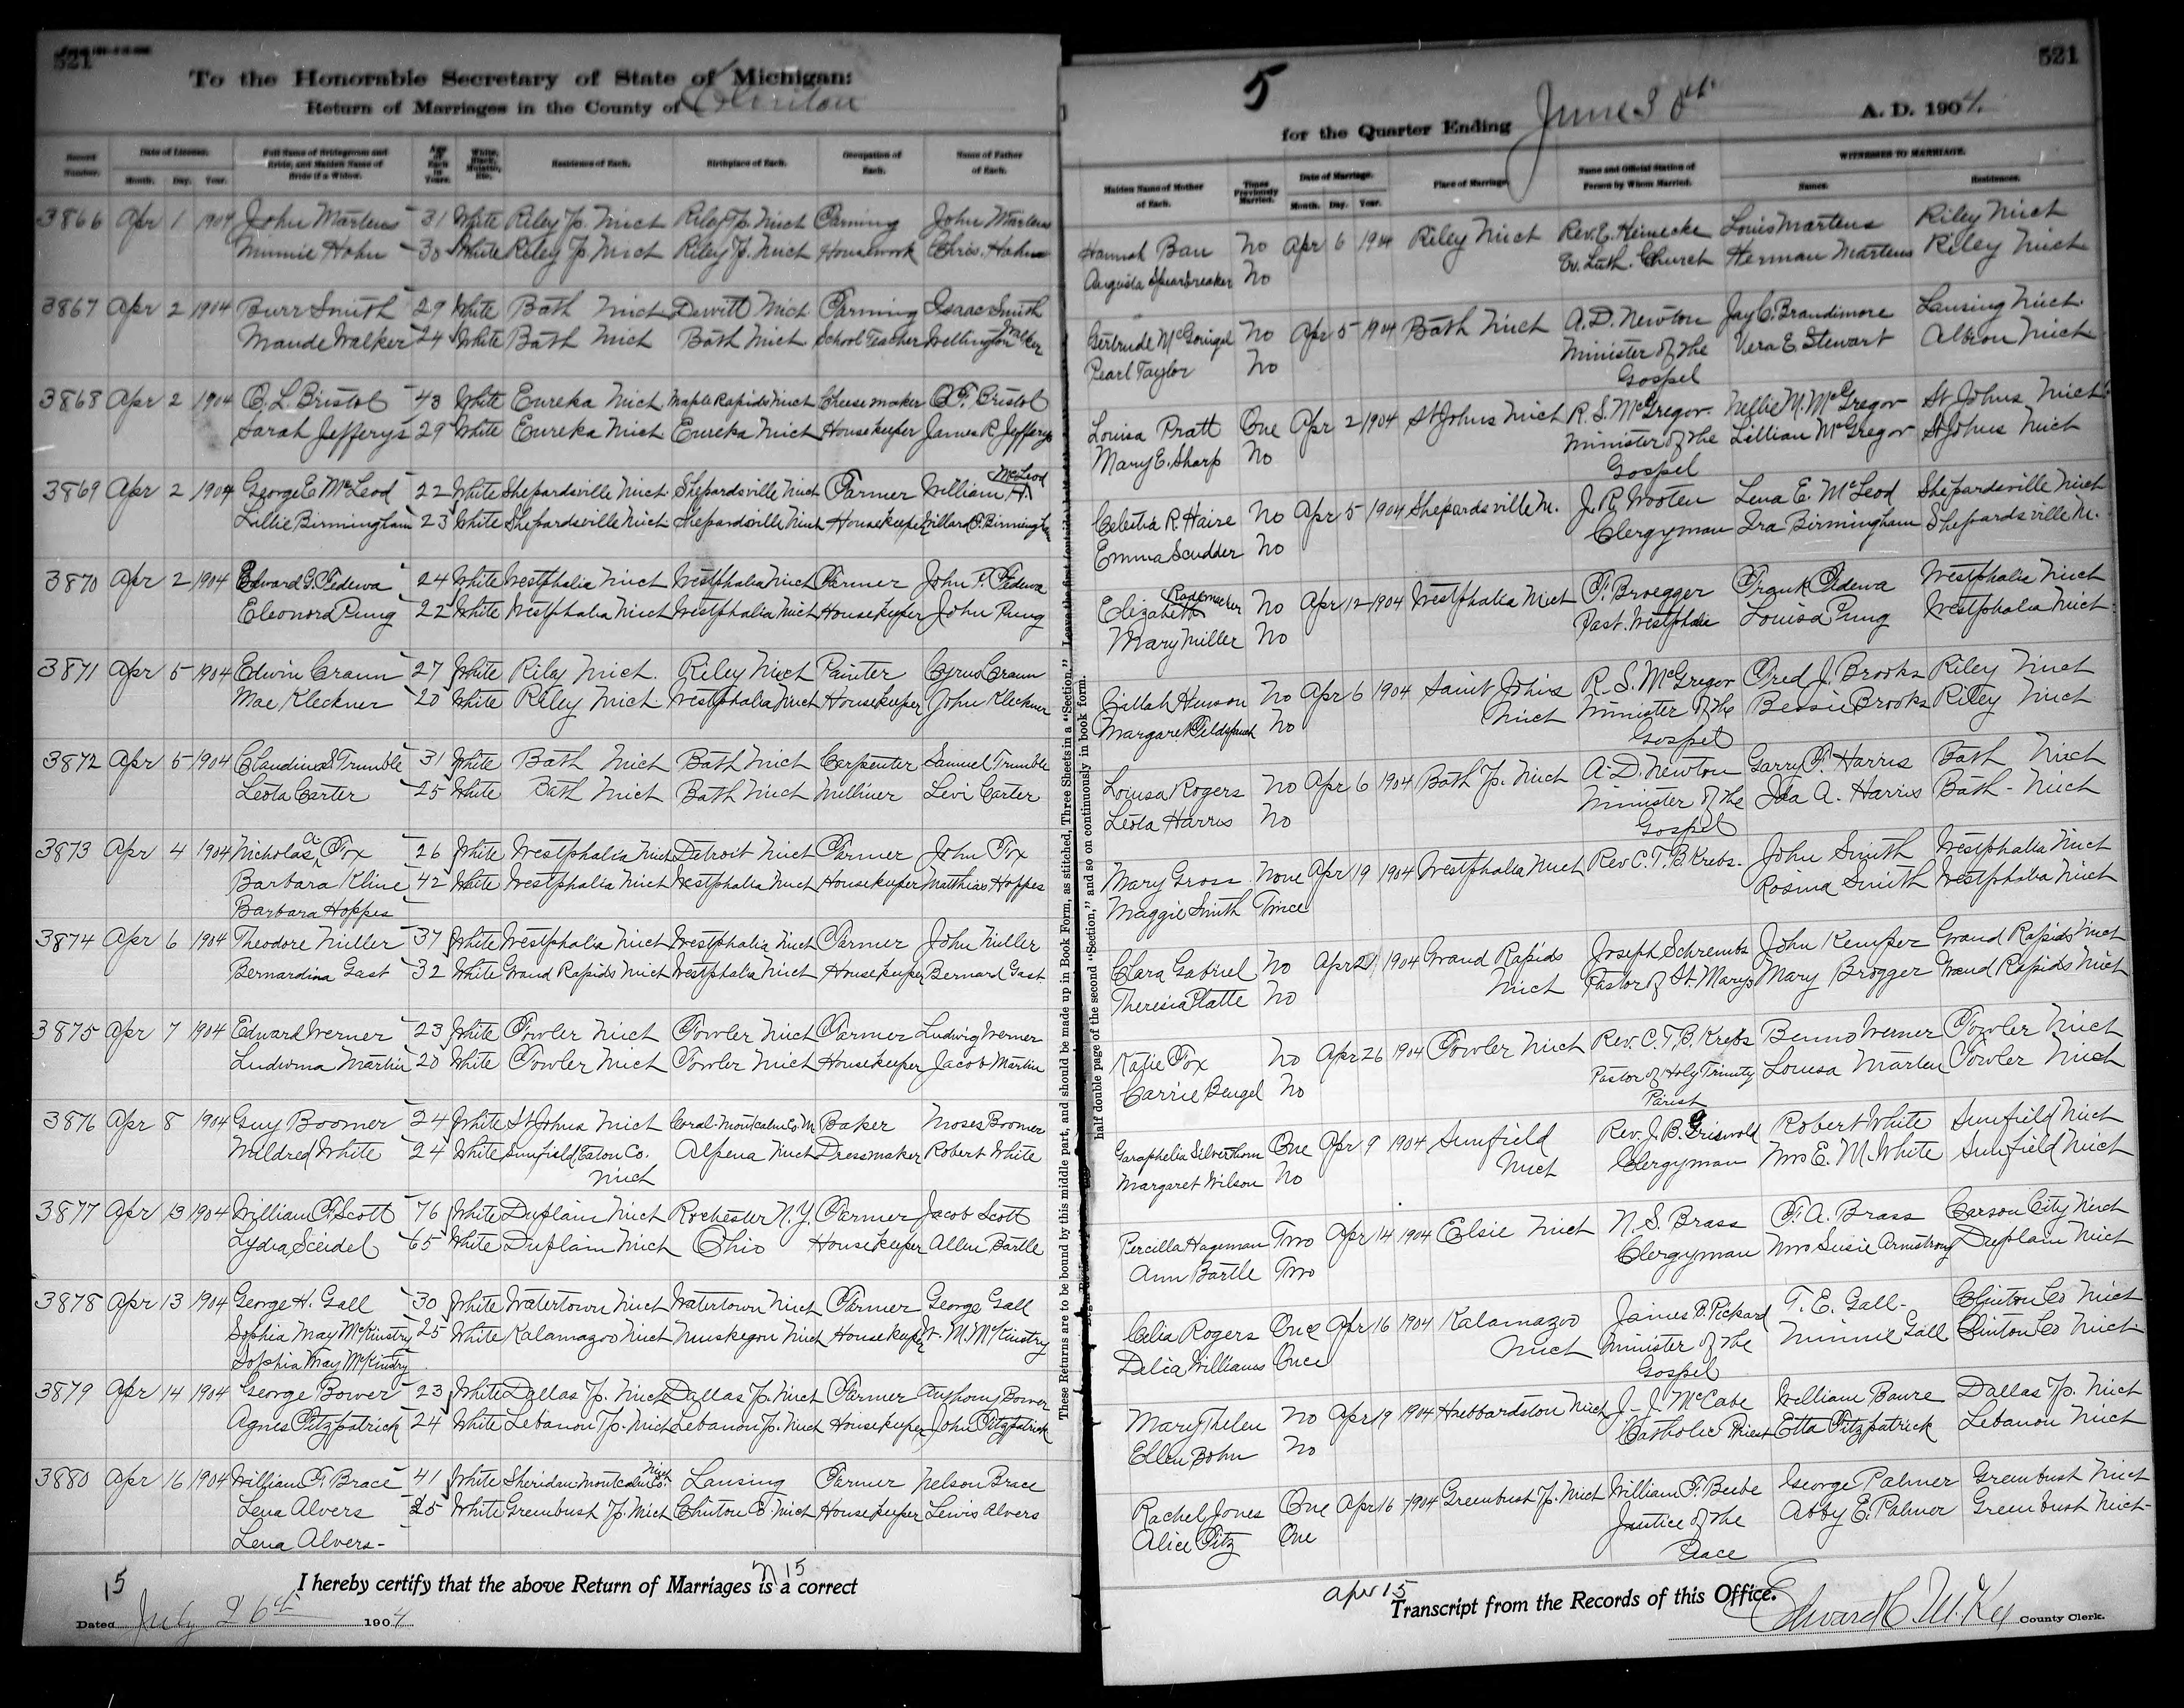 521
To the Honorable Secretary of State of Michigan:
Return of Marriages in the County of Clinton
Record Number.
Date of License.
Month. Day. Year.
Full Name of Bridegroom and Bride, and Maiden Name of Bride if a Widow.
Age of Each in Years.
White, Black, Mulatto, Etc.
Residence of Each.
Birthplace of Each.
Occupation of Each.
Name of Father of Each.
3866 Apr 1 1904 John Martens 31 White Riley Tp. Mich Riley Tp. Mich Farming John Martens
Minnie Hahn 30 White Riley Tp Mich Riley Tp. Mich Housework Chris. Hahn
3867 Apr 2 1904 Burr Smith 29 White Bath Mich Dewitt Mich Farming Isaac Smith
Maude Walker 24 White Bath Mich Bath Mich School Teacher Wellington Walker
3868 Apr 2 1904 C. L. Bristol 43 White Eureka Mich Maple Rapids Mich Cheese maker Bristol
Sarah Jefferys 29 White Eureka Mich Eureka Mich Housekeeper James R. Jefferys
3869 Apr 2 1904 George E McLeod 22 White Shepardsville Mich. Shepardsville Mich Farmer William H. McLeod
Lillie Birmingham 23 White Shepardsville Mich Shepardsville Mich Housekeeper Willard Birmingham
3870 Apr 2 1904 Edward G. Fedewa 24 White Westphalia Mich Westphalia Mich Farmer John P. Fedewa
Eleonord Pung 22 White Westphalia Mich Westphalia Mich Housekeeper John Pung
3871 Apr 5 1904 Edwin Craun 27 White Riley Mich. Riley Mich Painter Cyrus Craun
Mae Kleckner 20 White Riley Mich. Westphalia Mich Housekeeper John Kleckner
3872 Apr 5 1904 Claudius S. Trumble 31 White Bath Mich Bath Mich Carpenter Samuel Trumble
Leota Carter 25 White Bath Mich Bath Mich Milliner Levi Carter
3873 Apr 4 1904 Nicholas Fox 26 White Westphalia Mich Detroit Mich Farmer John Fox
Barbara Kline 42 White Westphalia Mich Westphalia Mich Housekeeper Matthias Hoppes
Barbara Hoppes
3874 Apr 6 1904 Theodore Miller 37 White Westphalia Mich Westphalia Mich Farmer John Miller
Bernardina Gast 32 White Grand Rapids Mich Westphalia Mich Housekeeper Bernard Gast
3875 Apr 7 1904 Edward Werner 23 White Fowler Mich Fowler Mich Farmer Ludwig Werner
Ludwina Martin 20 White Fowler Mich Fowler Mich Housekeeper Jacob Martin
3876 Apr 8 1904 Guy Boomer 24 White St Johns Mich Coral-Montcalm Co M Baker Moses Boomer
Mildred White 24 White Sunfield Eaton Co. Mich Alpena Mich Dressmaker Robert White
3877 Apr 13 1904 William F. Scott 76 White Duplain Mich Rochester N.Y. Farmer Jacob Scott
Lydia Sceidel 65 White Duplain Mich Ohio Housekeeper Allen Bartle
3878 Apr 13 1904 George H. Gall 30 White Watertown Mich Watertown Mich Farmer George Gall
Sophia May McKinstry 25 White Kalamazoo Mich Muskegon Mich Housekeeper M. McKinstry
Sophia May McKinstry
3879 Apr 14 1904 George Bower 23 White Dallas Tp. Mich Dallas Tp. Mich Farmer Anthony Bower
Agnes Fitzpatrick 24 White Lebanon Tp. Mich Lebanon Tp. Mich Housekeeper John Fitzpatrick
3880 Apr 16 1904 William F. Brace 41 White Sheridan-Montcalm Co. Mich Lansing Farmer Nelson Brace
Lena Alvers 25 White Greenbush Tp. Mich Clinton Co. Mich Housekeeper Lewis Alvers
Lena Alvers-
15
n 15
I hereby certify that the above Return of Marriages is a correct
Dated July 26th 1904
These Returns are to be bound by this middle part, and should be made up in Book Form, as stitched, Three Sheets in a "Section."
half double page of the second "Section," and so on continuously in book form.
521
5
for the Quarter Ending June 30th A. D. 1904.
Maiden Name of Mother of Each.
Times Previously Married.
Date of Marriage.
Month. Day. Year.
Place of Marriage.
Name and Official Station of Person by Whom Married.
WITNESSES TO MARRIAGE.
Names. Residences.
Hannah Bau No Apr 6 1904 Riley Mich Rev. E. Heinecke Louis Martens Riley Mich
Augusta Spearbreaker No Ev. Luth. Church Herman Martens Riley Mich
Gertrude McGonigal No Apr 5 1904 Bath Mich A. D. Newton Jay C. Brandimore Lansing Mich.
Pearl Taylor No Minister of the Gospel Vera E. Stewart Albion Mich
Louisa Pratt One Apr 2 1904 St Johns Mich R. S. McGregor. Nellie M. McGregor St Johns Mich
Mary E. Sharp No Minister of the Gospel Lillian McGregor St Johns Mich
Celestia R. Haire No Apr 5 1904 Shepardsville M. J. R. Wooten Lena E. McLeod Shepardsville Mich
Emma Scudder No Clergyman Ira Birmingham Shepardsville M.
Elizabeth Rademacher No Apr 12 1904 Westphalia Mich F. Broegger Frank Fedewa Westphalia Mich
Mary Miller No Past. Westphalia Louisa Pung Westphalia Mich
Cillah Henson No Apr 6 1904 Saint Johns Mich R. S. McGregor Fred J. Brooks Riley Mich
Margaret No Minister of the Gospel Bessie Brooks Riley Mich
Louisa Rogers No Apr 6 1904 Bath Tp. Mich A. D. Newton Garry F. Harris Bath Mich
Leota Harris No Minister of the Gospel Ida A. Harris Bath - Mich
Mary Gross None Apr 19 1904 Westphalia Mich Rev C. T. B. Krebs. John Smith Westphalia Mich
Maggie Smith Twice Rosina Smith Westphalia Mich
Clara Gabriel No Apr 1904 Grand Rapids Mich Joseph Schrembs John Kemper Grand Rapids Mich
Theresia Platte No Pastor of St. Marys Mary Brogger Grand Rapids Mich
Katie Fox No Apr 26 1904 Fowler Mich Rev. C. T. B. Krebs Benno Werner Fowler Mich
Carrie Bengel No Pastor of Holy Trinity Parish Louisa Martin Fowler Mich
Garaphelia Silverthorn One Apr 9 1904 Sunfield Mich Rev. J. B. Griswold Robert White Sunfield Mich
Margaret Wilson No Clergyman Mrs E. M. White Sunfield Mich
Percilla Hageman Two Apr 14 1904 Elsie Mich N. S. Brass F. A. Brass Carson City Mich
Ann Bartle Two Clergyman Mrs Susie Armstrong Duplain Mich
Celia Rogers Once Apr 16 1904 Kalamazoo Mich James B. Pickard T. E. Gall- Clinton Co Mich
Delia Williams Once Minister of the Gospel Minnie Gall Clinton Co Mich
Mary Thelen No Apr 19 1904 Hubbardston Mich J. J. McCabe William Baure Dallas Tp. Mich
Ellen Bohn No Catholic Priest Etta Fitzpatrick Lebanon Mich
Rachel Jones One Apr 16 1904 Greenbush Tp. Mich William T. Beebe George Palmer Greenbush Mich
Alice Fitz One Justice of the Peace Abby E. Palmer Greenbush Mich-
apr 15
Transcript from the Records of this Office.
County Clerk.